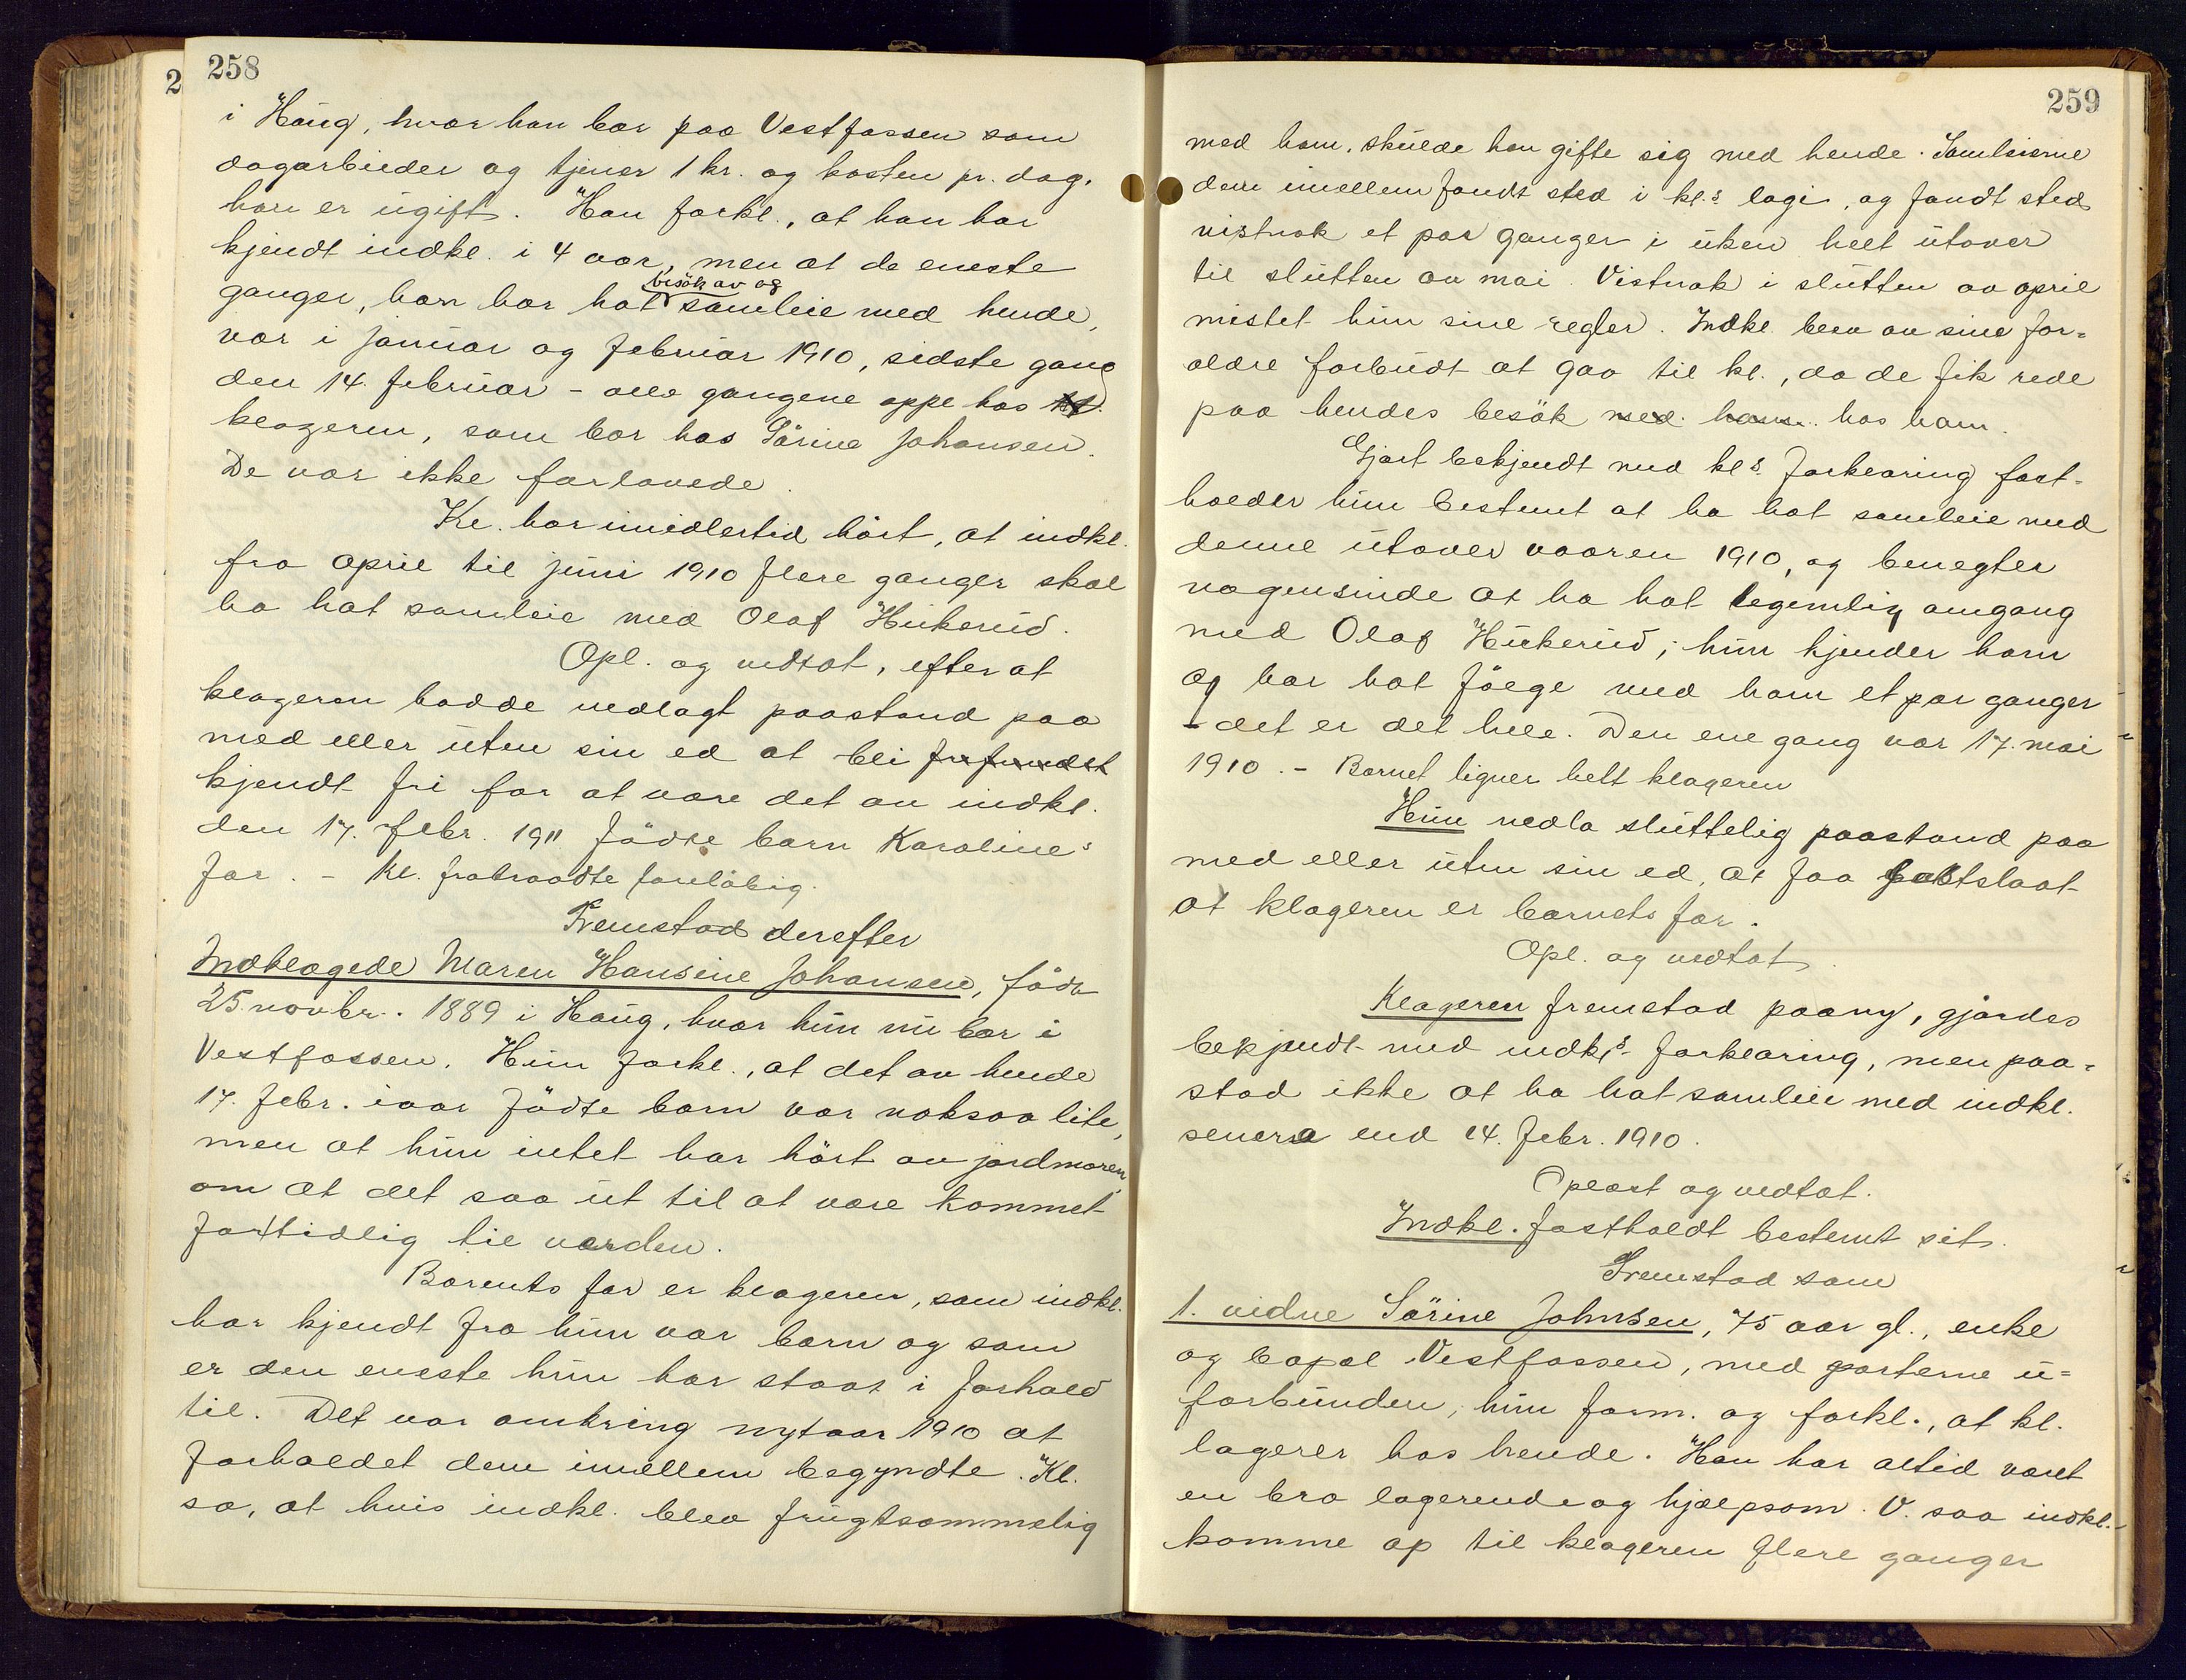 258
i Haug, hvor han bor paa Vestfossen som
dagarbeider og tjener 1 kr. og kosten pr. dag.
han er ugift. Han forkl., at han har
kjendt indkl. i 4 aar, men at de eneste
besök av og
ganger, han har hat samleie med hende,
var i januar og februar 1910, sidste gang
den 14. februar - alle gangene oppe hos kl.
klageren, som bor hos Sörine Johansen.
De var ikke forlovede.
Kl. har imidlertid hört, at indkl.
fra april til juni 1910 flere ganger skal
ha hat samleie med Olaf Hukerud.
Opl. og vedtat, efter at
klageren hadde nedlagt paastand paa
med eller uten sin ed at bli
kjendt fri for at være det av indkl.
den 17. febr. 1911 födte barn Karoline's
far. - Kl. fratraadte foreløbig.
Fremstod derefter
Indklagede Maren Hansine Johansen, född
25. novbr. 1889 i Haug, hvor hun nu bor i
Vestfossen. Hun forkl., at det av hende
17. febr. iaar födte barn var noksaa lite,
men at hun intet har hört av jordmoren
om at det saa ut til at være kommet
fortidlig til verden.
Barnets far er klageren, som indkl.
har kjendt fra hun var barn og som
er den eneste hun har staat i forhold
til. Det var omkring nytaar 1910 at
forholdet dem imellem begyndte. Kl.
sa, at hvis indkl. blev frugtsommelig
259
med ham, skulde han gifte sig med hende. Samleierne
dem imellem fandt sted i kl.s logi, og fandt sted
vistnok et par ganger i uken helt utover
til slutten av mai. Vistnok i slutten av april
mistet hun sine regler. Indkl. blev av sine for-
ældre forbudt at gaa til kl., da de fik rede
paa hendes besök med ham hos ham.
Gjort bekjendt med kl.s forklaring fast-
holder hun bestemt at ha hat samleie med
denne utover vaaren 1910, og benegter
nogensinde at ha hat legemlig omgang
med Olaf Hukerud; hun kjender ham
og har hat fölge med ham et par ganger
- det er det hele. Den ene gang var 17. mai
1910. - Barnet ligner helt klageren
Hun nedla sluttelig paastand paa
med eller uten sin ed, at faa fastslaat
at klageren er barnets far.
Opl. og vedtat.
Klageren fremstod paany, gjordes
bekjendt med indkl.s forklaring, men paa-
stod ikke at ha hat samleie med indkl.
senere end 14. febr. 1910.
Oplæst og vedtat.
Indkl. fastholdt bestemt sit.
Fremstod som
1. vidne Sörine Johnsen, 75 aar gl., enke
og bopæl Vestfossen, med parterne u-
forbunden, hun form. og forkl., at kl.
logerer hos hende. Han har altid været
en bra logerende og hjælpsom. V. saa indkl.
komme op til klageren flere ganger